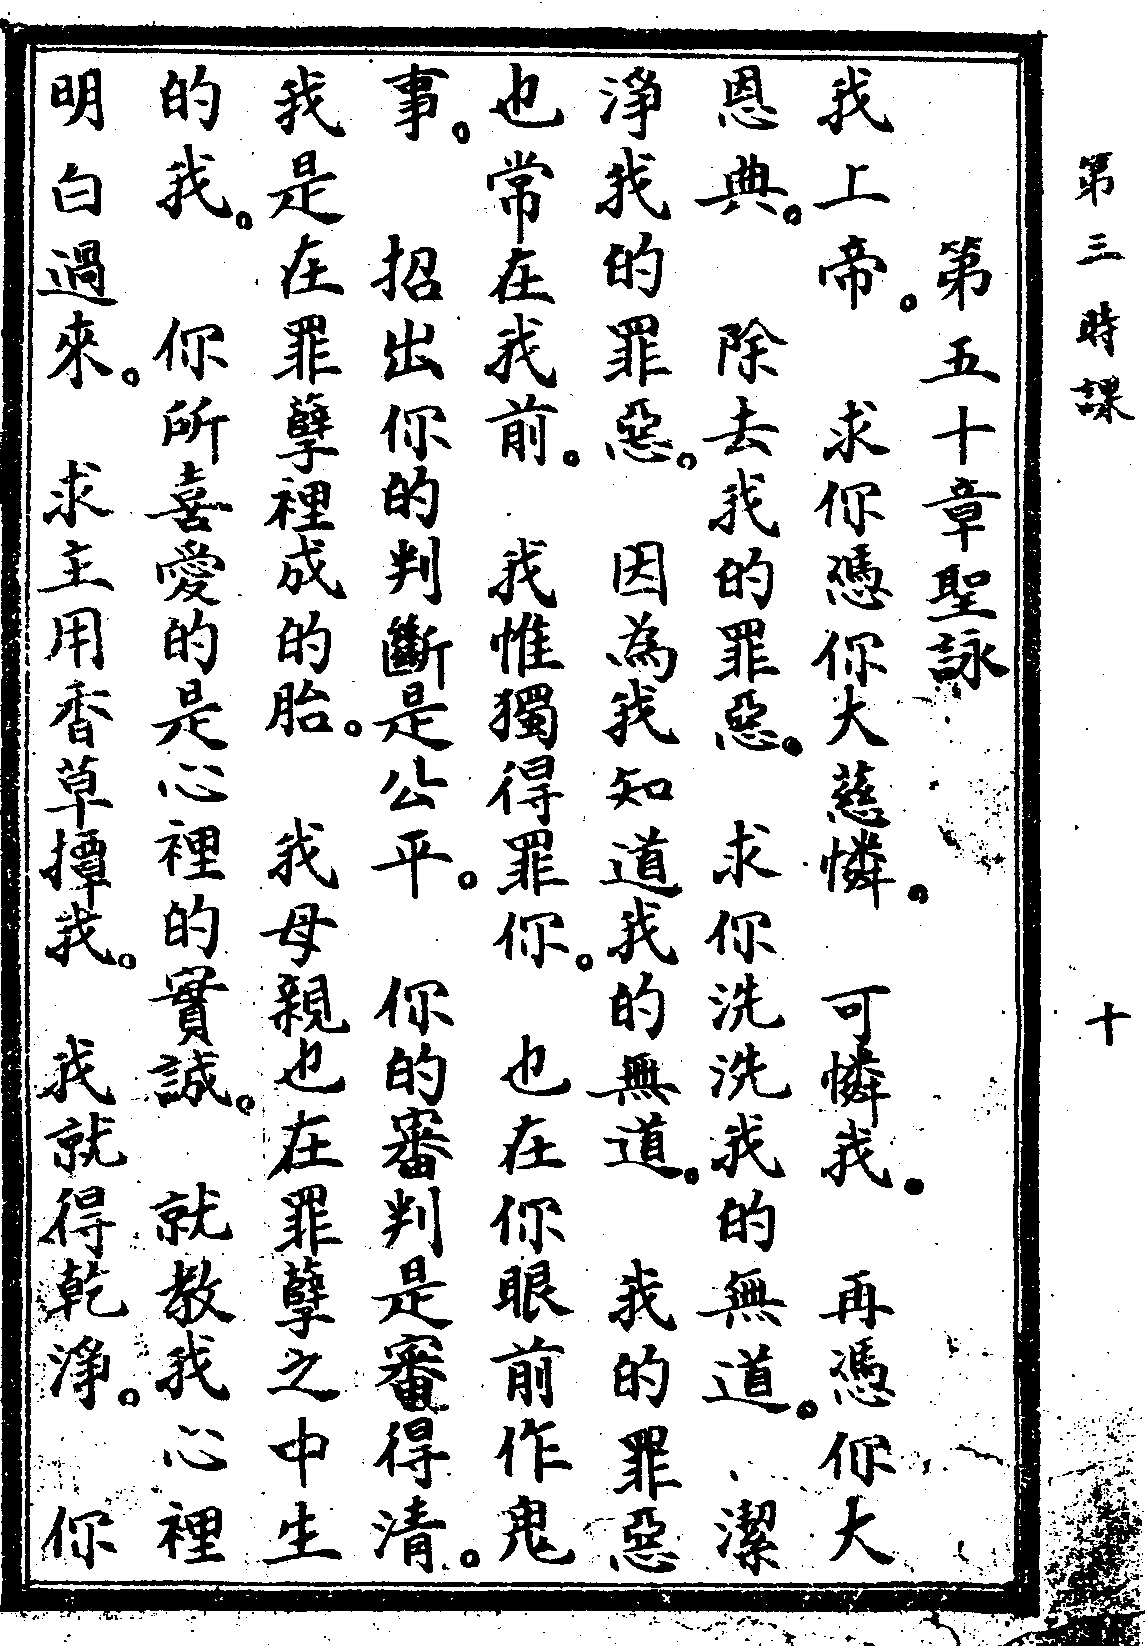 第三時課 十
第五十章聖詠
我上帝。 求你憑你大慈憐。 可憐我。 再憑你大
恩典。 除去我的罪惡。 求你洗洗我的無道。 潔
淨我的罪惡。 因為我知道我的無道。 我的罪惡
也常在我前。 我惟獨得罪你。 也在你眼前作鬼
事。 招出你的判斷是公平。 你的審判是審得清。
我是在罪孽裡成的胎。 我母親也在罪孽之中生
的我。 你所喜愛的是心裡的實誠。 就教我心裡
明白過來。 求主用香草撢我。 我就得乾淨。 你